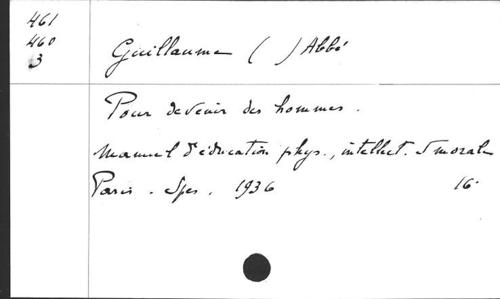 461
460
3
Guillaume ( ) Abbé
Pour devenir des hommes.
Manuel d'éducation phys., intellect. & morale
Paris. Spes. 1936 16.